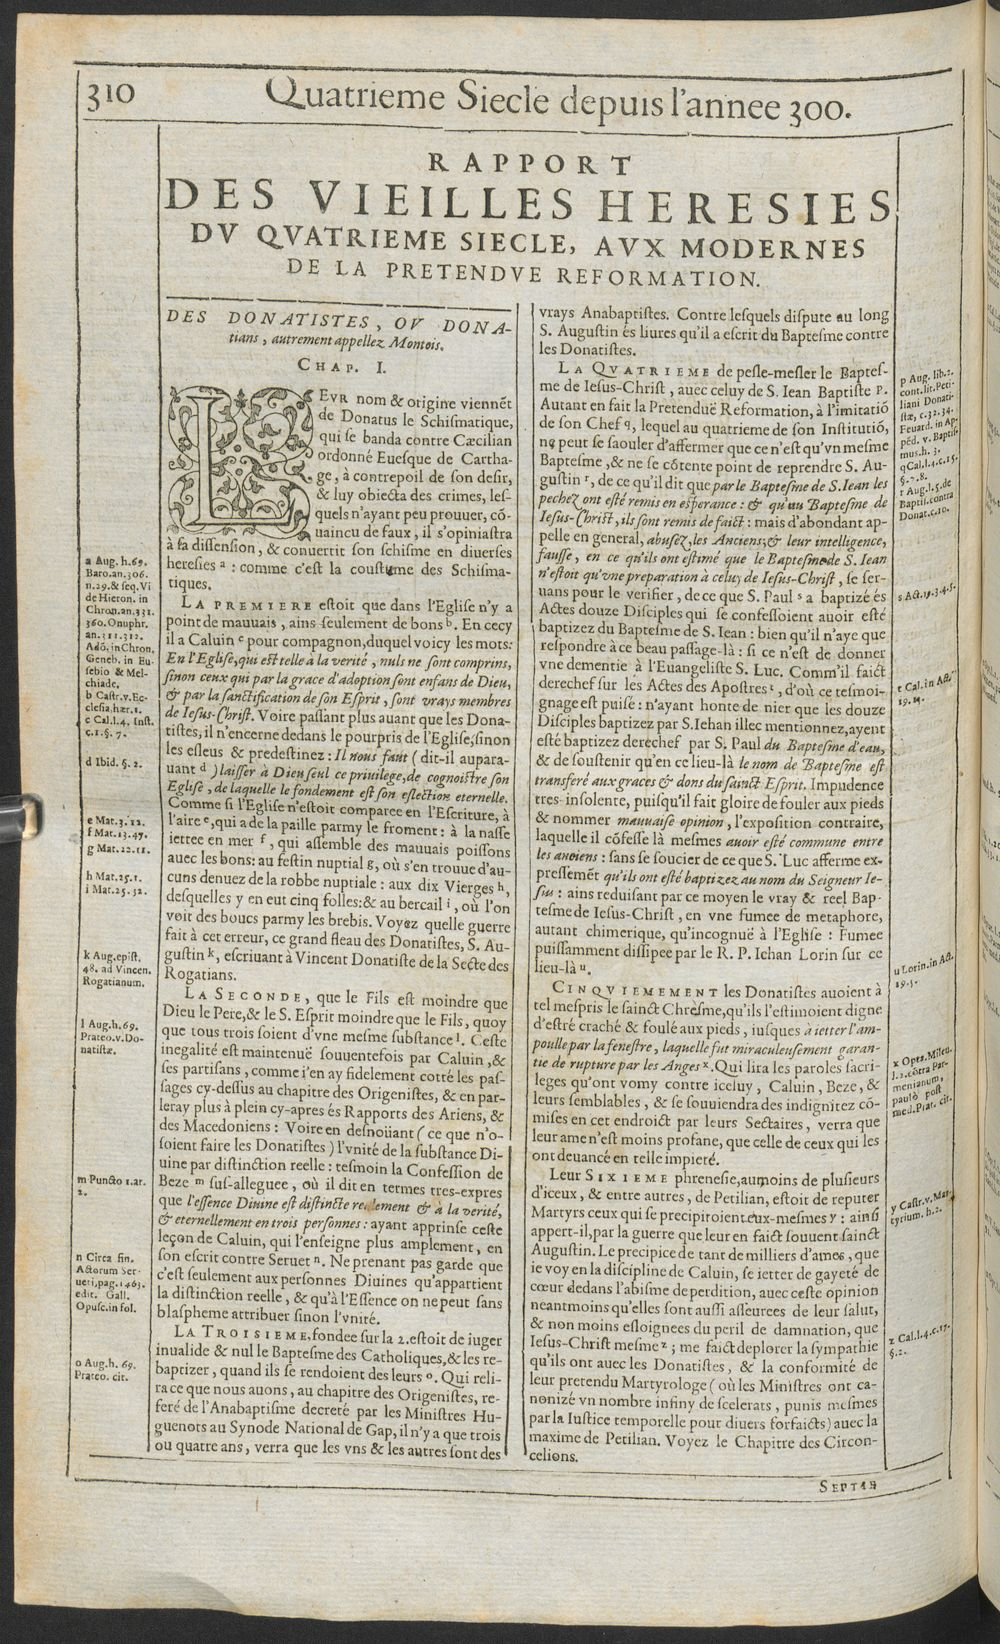 310
Quatrieme Siecle depuis l'annee 300.
RAPPORT
DES VIEILLES HERESIES
DV QVATRIEME SIECLE, AVX MODERNES
DE LA PRETENDVE REFORMATION.
DES DONATISTES, OV DONA-
tians, autrement appellez Montois.
CHAP. I.
LEVR nom & origine viennẽt
de Donatus le Schiſmatique,
qui ſe banda contre Cæcilian
ordonné Eueſque de Cartha-
ge, à contrepoil de ſon deſir,
& luy obiecta des crimes, leſ-
quels n'ayant peu prouuer, cõ-
uaincu de faux, il s'opiniaſtra
à ſa diſſenſion, & conuertit ſon ſchiſme en diuerſes
hereſies a : comme c'eſt la couſtume des Schiſma-
tiques.
LA PREMIERE eſtoit que dans l'Egliſe n'y a
point de mauuais, ains ſeulement de bons b. En cecy
il a Caluin c pour compagnon, duquel voicy les mots:
En l'Egliſe, qui eſt telle à la verité, nuls ne ſont comprins,
ſinon ceux qui par la grace d'adoption ſont enfans de Dieu,
& par la ſanctification de ſon Eſprit, ſont vrays membres
de Ieſus-Chriſt. Voire paſſant plus auant que les Dona-
tiſtes, il n'encerne dedans le pourpris de l'Egliſe, ſinon
les eſleus & predeſtinez : Il nous faut (dit-il aupara-
uant d) laiſſer à Dieu ſeul ce priuilege, de cognoiſtre ſon
Egliſe, de laquelle le fondement eſt ſon eſlection eternelle.
Comme ſi l'Egliſe n'eſtoit comparee en l'Eſcriture, à
l'aire e, qui a de la paille parmy le froment : à la naſſe
iettee en mer f, qui aſſemble des mauuais poiſſons
auec les bons: au feſtin nuptial g, où s'en trouue d'au-
cuns denuez de la robbe nuptiale : aux dix Vierges h,
deſquelles y en eut cinq folles: & au bercail i, où l'on
voit des boucs parmy les brebis. Voyez quelle guerre
fait à cet erreur, ce grand fleau des Donatiſtes, S. Au-
guſtin k, eſcriuant à Vincent Donatiſte de la Secte des
Rogatians.
LA SECONDE, que le Fils eſt moindre que
Dieu le Pere, & le S. Eſprit moindre que le Fils, quoy
que tous trois ſoient d'vne meſme ſubſtance l. Ceſte
inegalité eſt maintenuë ſouuentefois par Caluin, &
ſes partiſans, comme i'en ay fidelement cotté les paſ-
ſages cy-deſſus au chapitre des Origeniſtes, & en par-
leray plus à plein cy-apres és Rapports des Ariens, &
des Macedoniens : Voire en deſnoüant (ce que n'o-
ſoient faire les Donatiſtes) l'vnité de la ſubſtance Di-
uine par diſtinction reelle : teſmoin la Confeſſion de
Beze m ſuſ-alleguee, où il dit en termes tres-expres
que l'eſſence Diuine eſt diſtincte reellement & à la verité,
& eternellement en trois perſonnes : ayant apprinſe ceſte
leçon de Caluin, qui l'enſeigne plus amplement, en
ſon eſcrit contre Seruet n. Ne prenant pas garde que
c'eſt ſeulement aux perſonnes Diuines qu'appartient
la diſtinction reelle, & qu'à l'Eſſence on ne peut ſans
blaſpheme attribuer ſinon l'vnité.
LA TROISIEME, fondee ſur la 2. eſtoit de iuger
inualide & nul le Bapteſme des Catholiques, & les re-
baptizer, quand ils ſe rendoient des leurs o. Qui reli-
ra ce que nous auons, au chapitre des Origeniſtes, re-
feré de l'Anabaptiſme decreté par les Miniſtres Hu-
guenots au Synode National de Gap, il n'y a que trois
ou quatre ans, verra que les vns & les autres ſont des
vrays Anabaptiſtes. Contre leſquels diſpute au long
S. Auguſtin és liures qu'il a eſcrit du Bapteſme contre
les Donatiſtes.
LA QVATRIEME de peſle-meſler le Bapteſ-
me de Ieſus-Chriſt, auec celuy de S. Iean Baptiſte p.
Autant en fait la Pretenduë Reformation, à l'imitatiõ
de ſon Chef q, lequel au quatrieme de ſon Inſtitutiõ,
ne peut ſe ſaouler d'affermer que ce n'eſt qu'vn meſme
Bapteſme, & ne ſe cõtente point de reprendre S. Au-
guſtin r, de ce qu'il dit que par le Bapteſme de S. Iean les
pechez ont eſté remis en eſperance : & qu'au Bapteſme de
Ieſus-Chriſt, ils ſont remis de faict : mais d'abondant ap-
pelle en general, abuſez, les Anciens, & leur intelligence,
fauſſe, en ce qu'ils ont eſtimé que le Bapteſme de S. Iean
n'eſtoit qu'vne preparation à celuy de Ieſus-Chriſt, ſe ſer-
uans pour le verifier, de ce que S. Paul s a baptizé és
Actes douze Diſciples qui ſe confeſſoient auoir eſté
baptizez du Bapteſme de S. Iean : bien qu'il n'aye que
reſpondre à ce beau paſſage-là : ſi ce n'eſt de donner
vne dementie à l'Euangeliſte S. Luc. Comm'il faict
derechef ſur les Actes des Apoſtres t, d'où ce teſmoi-
gnage eſt puiſé : n'ayant honte de nier que les douze
Diſciples baptizez par S. Iehan illec mentionnez, ayent
eſté baptizez derechef par S. Paul du Bapteſme d'eau,
& de ſouſtenir qu'en ce lieu-là le nom de Bapteſme eſt
transferé aux graces & dons du ſainct Eſprit. Impudence
tres-inſolente, puiſqu'il fait gloire de fouler aux pieds
& nommer mauuaiſe opinion, l'expoſition contraire,
laquelle il cõfeſſe là meſmes auoir eſté commune entre
les anciens : ſans ſe ſoucier de ce que S. Luc afferme ex-
preſſemẽt qu'ils ont eſté baptizez au nom du Seigneur Ie-
ſus : ains reduiſant par ce moyen le vray & reel Bap-
teſme de Ieſus-Chriſt, en vne fumee de metaphore,
autant chimerique, qu'incognuë à l'Egliſe : Fumee
puiſſamment diſſipee par le R. P. Iehan Lorin ſur ce
lieu-là u.
CINQVIEMEMENT les Donatiſtes auoient à
tel meſpris le ſainct Chreſme, qu'ils l'eſtimoient digne
d'eſtré craché & foulé aux pieds, iuſques à ietter l'am-
poulle par la feneſtre, laquelle fut miraculeuſement garan-
tie de rupture par les Anges x. Qui lira les paroles ſacri-
leges qu'ont vomy contre iceluy, Caluin, Beze, &
leurs ſemblables, & ſe ſouuiendra des indignitez cõ-
miſes en cet endroict par leurs Sectaires, verra que
leur ame n'eſt moins profane, que celle de ceux qui les
ont deuancé en telle impieté.
Leur SIXIEME phreneſie, aumoins de pluſieurs
d'iceux, & entre autres, de Petilian, eſtoit de reputer
Martyrs ceux qui ſe precipitoient eux-meſmes y : ainſi
appert-il, par la guerre que leur en faict ſouuent ſainct
Auguſtin. Le precipice de tant de milliers d'ames, que
ie voy en la diſcipline de Caluin, ſe ietter de gayeté de
cœur dedans l'abiſme de perdition, auec ceſte opinion
neantmoins qu'elles ſont auſſi aſſeurees de leur ſalut,
& non moins eſloignees du peril de damnation, que
Ieſus-Chriſt meſme z ; me faict deplorer la ſympathie
qu'ils ont auec les Donatiſtes, & la conformité de
leur pretendu Martyrologe (où les Miniſtres ont ca-
nonizé vn nombre infiny de ſcelerats, punis meſmes
par la Iuſtice temporelle pour diuers forfaicts) auec la
maxime de Petilian. Voyez le Chapitre des Circon-
celions.
a Aug. h. 69.
Baro. an. 306.
n. 29. & ſeq. Vi
de Hieron. in
Chron. an. 331.
360. Onuphr.
an. 311. 312.
Adõ. in Chron.
Geneb. in Eu-
ſebio & Mel-
chiade.
b Caſtr. v. Ec-
cleſia. hær. 1.
c Cal. l. 4. Inſt.
c. 1. §. 7.
d Ibid. §. 2.
e Mat. 3. 12.
f Mat. 13. 47.
g Mat. 22. 11.
h Mat. 25. 1.
i Mat. 25. 32.
k Aug. epiſt.
48. ad Vincen.
Rogatianum.
l Aug. h. 69.
Prateo. v. Do-
natiſtæ.
m Puncto 1. ar.
2.
n Circa fin.
Actorum Ser-
ueti, pag. 1463.
edit. Gall.
Opuſc. in fol.
o Aug. h. 69.
Prateo. cit.
p Aug. lib. 2.
cont. lit. Peti-
liani Donati-
ſtæ, c. 32. 34.
Feuard. in Ap-
pẽd. v. Baptiſ-
mus. h. 3.
q Cal. l. 4. c. 15.
§. 7. 8.
r Aug. l. 5. de
Baptiſ. contra
Donat. c. 10.
s Act. 19. 3. 4. 5.
t Cal. in Act.
19. 14.
u Lorin. in Act.
19. 5.
x Opta. Mileu.
l. 2. cõtra Par-
menianum,
paulò poſt
med. Prat. cit.
y Caſtr. v. Mar-
tyrium. h. 2.
z Cal. l. 4. c. 17.
§. 2.